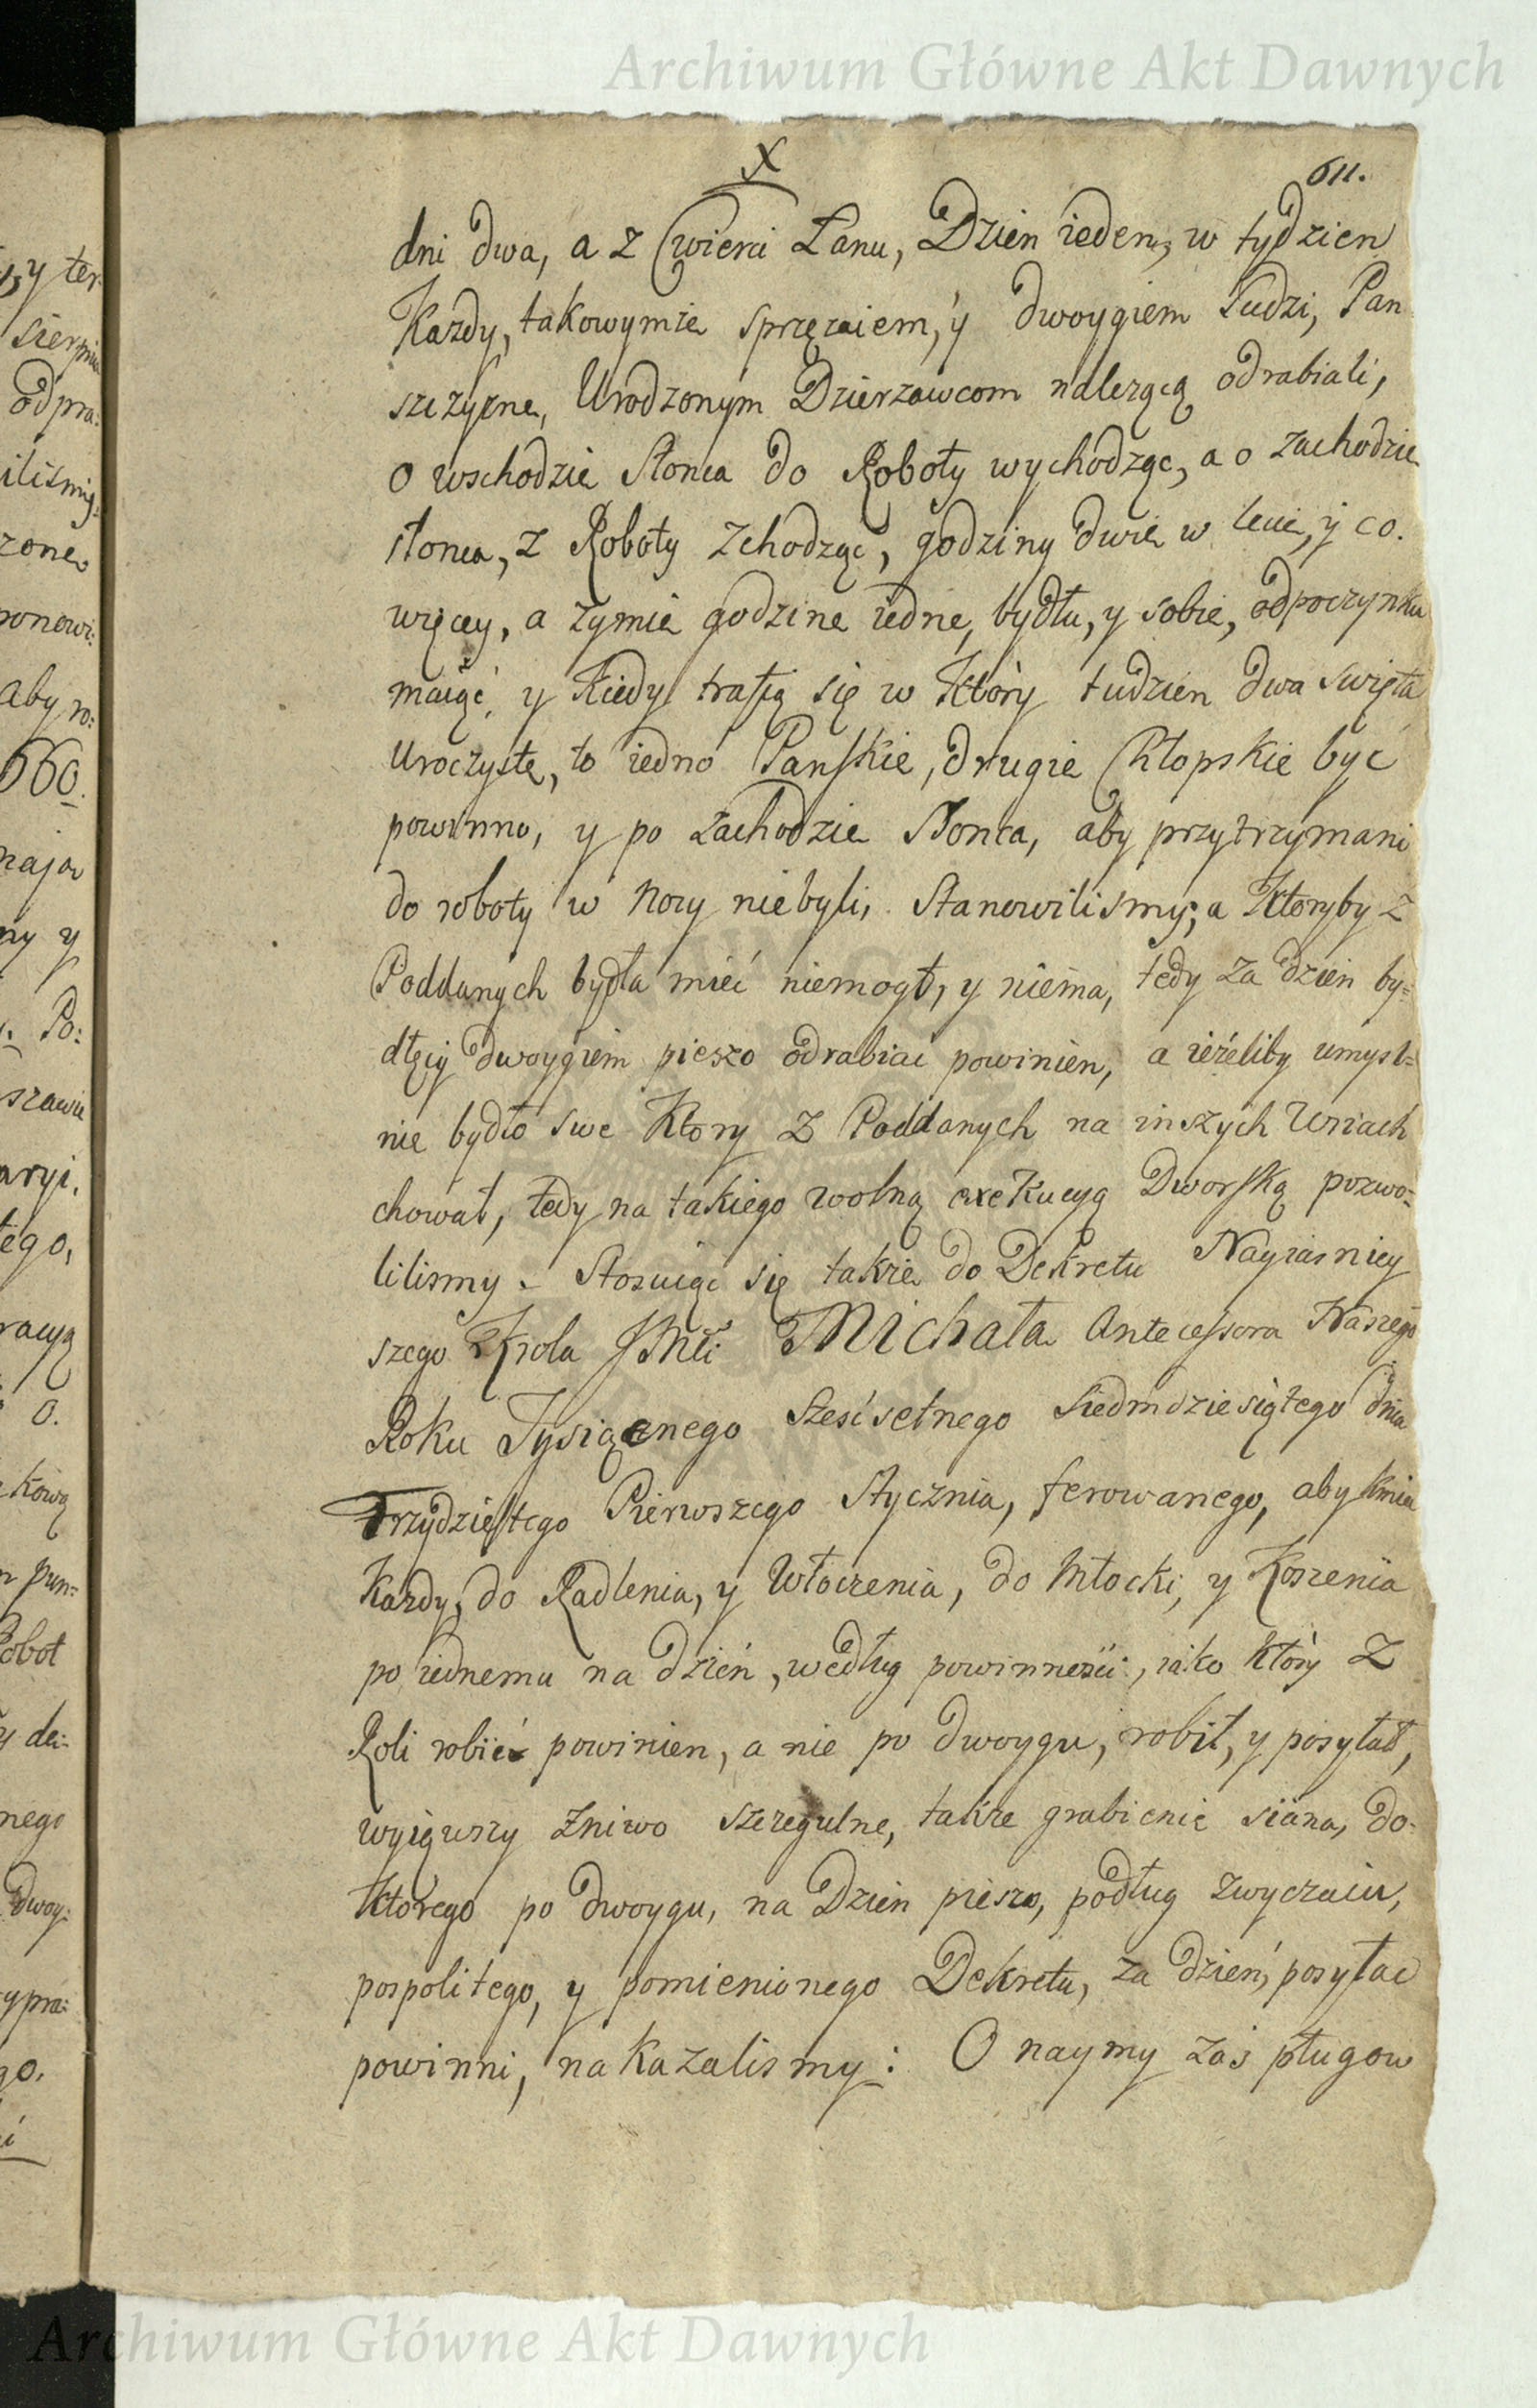 Archiwum Główne Akt Dawnych
X
611.
dni dwa, a z Cwierci Łanu, Dzien ieden, w tydzien
Kazdy, takowymże sprzęzaiem, y dwoygiem Ludzi, Pan
szczyzne, Urodzonym Dzierzawcom nalezącą odrabiali,
o wschodzie Słonca do Roboty wychodząc, a o zachodzie
słonca, z Roboty zchodząc, godziny dwie w lecie, y co.
więcey, a zymie godzine iedne, bydłu, y sobie, odpoczynku
maiąc, y Kiedy trafią się w Ktory tudzien dwa swięta
Uroczyste, to iedno Panskie, drugie Chłopskie być
powinno, y po zachodzie Słonca, aby przytrzymani
do roboty w Nocy niebyli, Stanowilismy; a Ktoryby z
Poddanych bydła mieć niemogł, y niema, tedy za dzien by=
dłęcy dwoygiem pieszo odrabiac powinien, a ieżeliby umysl=
nie bydło swe Ktory z Poddanych na inszych Wsiach
chował, tedy na takiego wolną exekucyą Dworską pozwo=
lilismy. Stosuiąc się takze do Dekretu Nayiasniey
szego Krola JMci Michała Antecessora Naszego
Roku Tysiącnego Szesćsetnego Siedmdziesiątego dnia
Trzydziestego Pierwszego Stycznia, ferowanego, aby Kmiec
Kazdy, do Radlenia, y Włoczenia, do Młocki, y Koszenia
po iednemu na dzień, według powinności, iako Ktory z
Roli robić powinien, a nie po dwoygu, robił, y posyłał,
wyiąwszy Zniwo szczegulne, takze grabienie siana, do=
Ktorego po dwoygu, na Dzien pieszo, podług zwyczaiu,
pospolitego, y pomienionego Dekretu, za dzień, posyłac
powinni, nakazalismy: O naymy zas pługow
Archiwum Główne Akt Dawnych